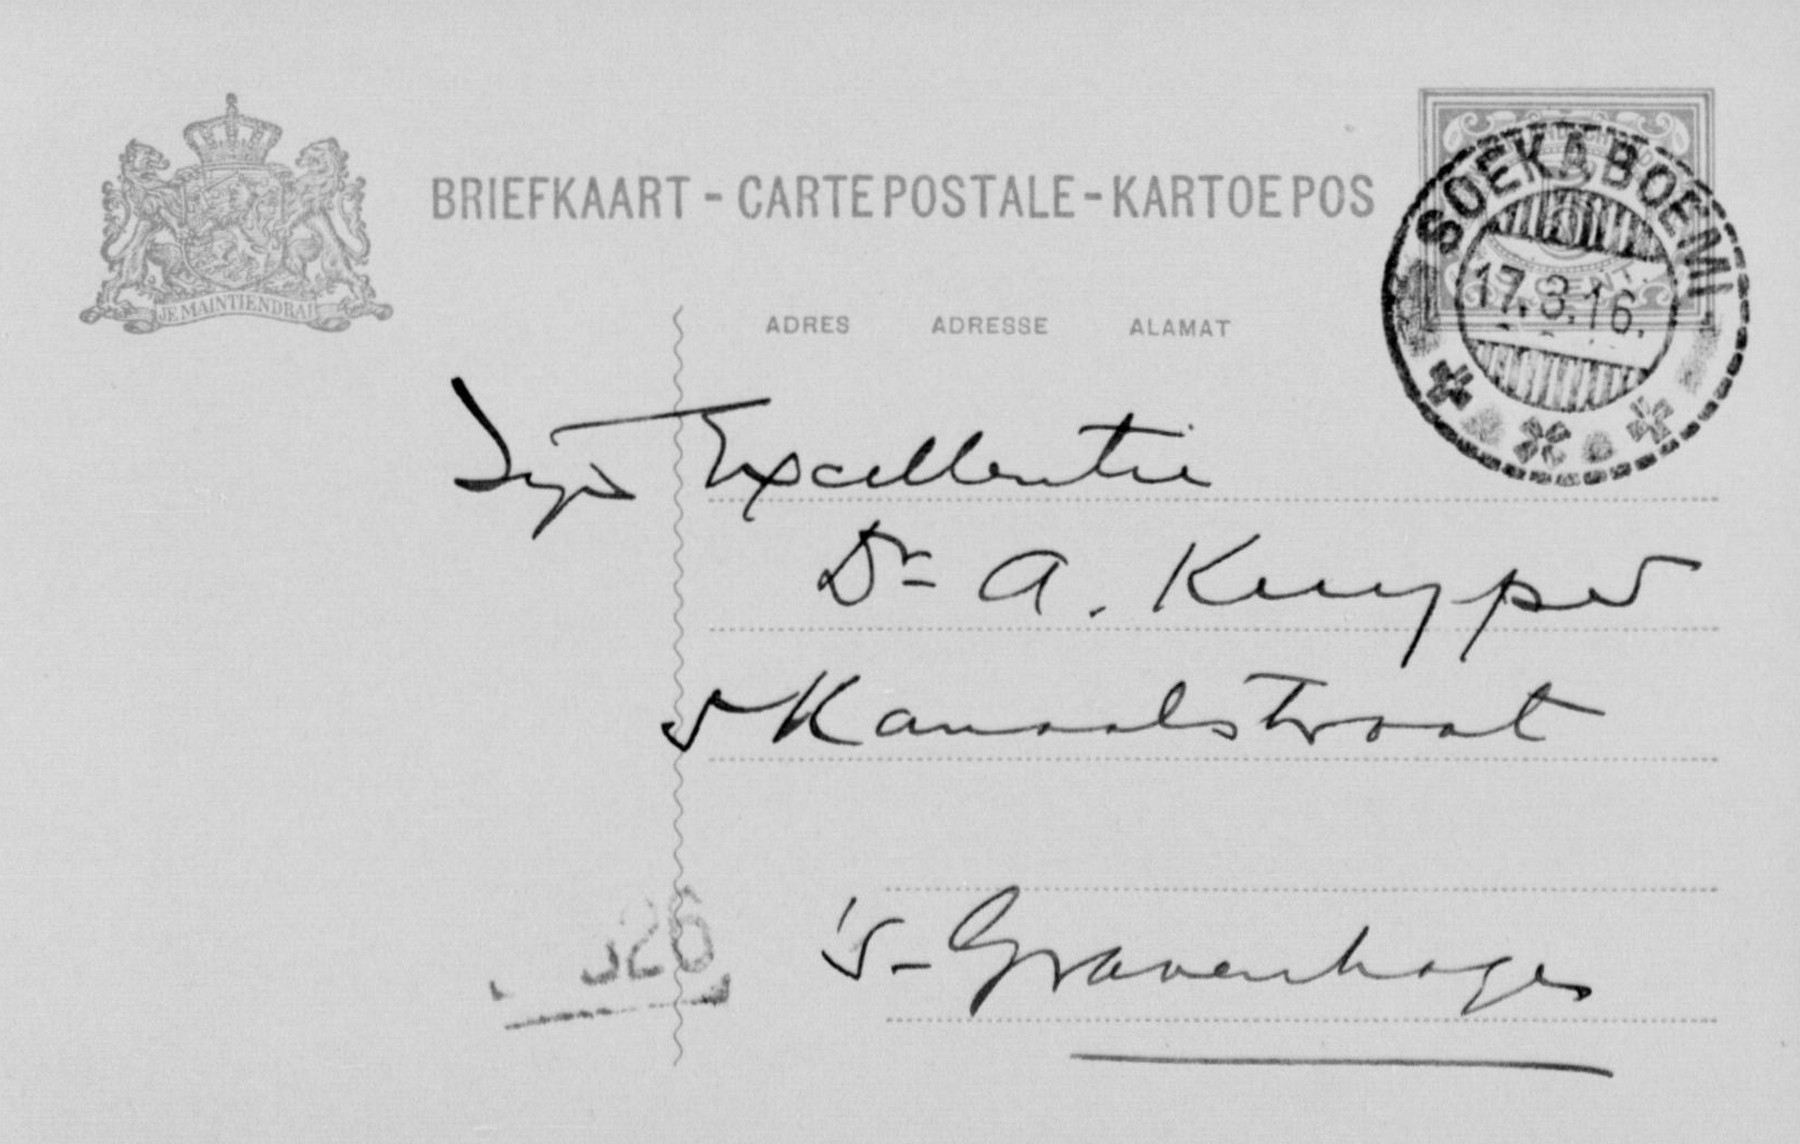 BRIEFKAART - CARTE POSTALE - KARTOE POS
JE MAINTIENDRAI
SOEKABOEMI
17.3.16.
CENT.
ADRES ADRESSE ALAMAT
Zijn Excellentie
Dr A. Kuyper
Kanaalstraat
's-Gravenhage
326